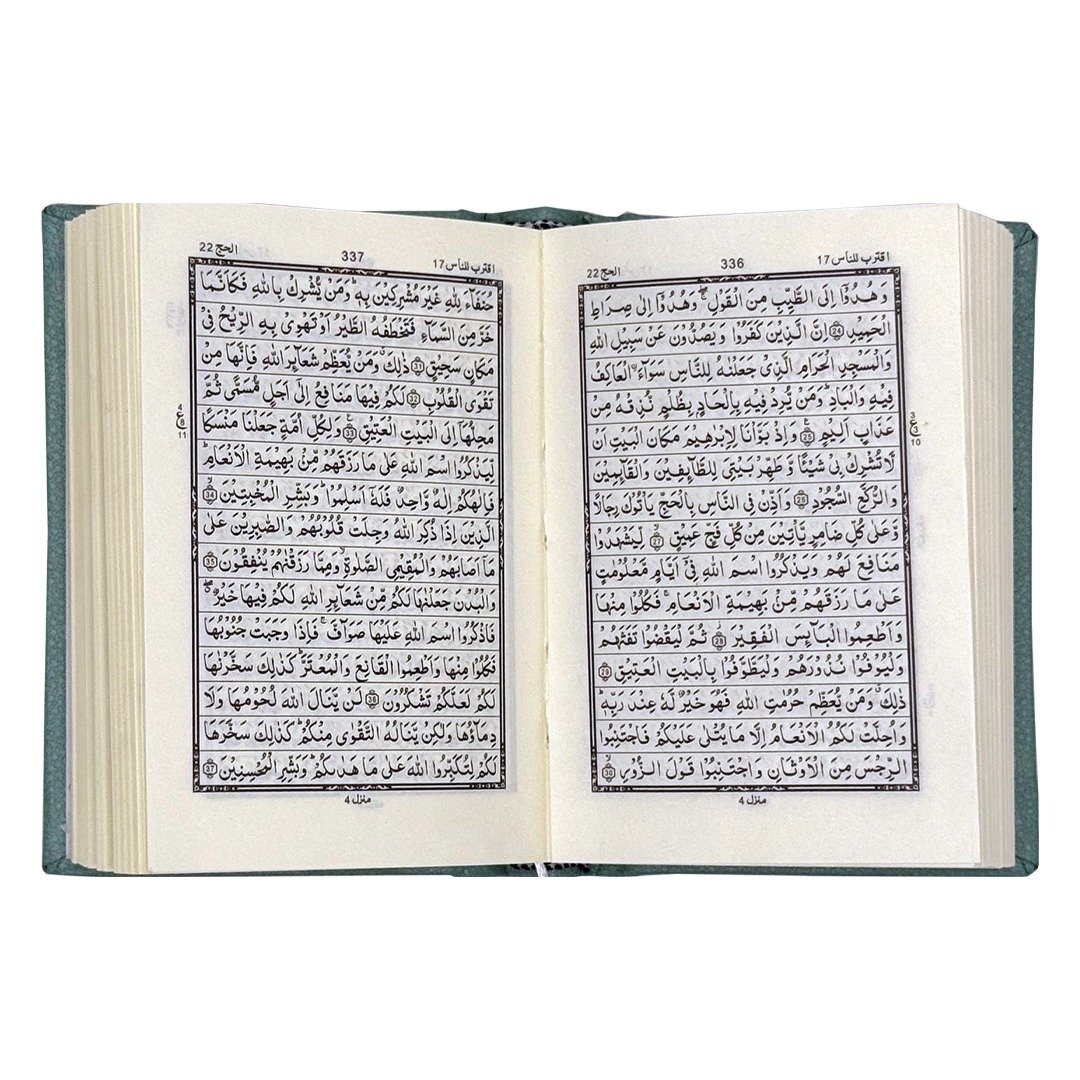 الحج 22
336
اقترب للناس 17
وَهُدُوْۤا اِلَى الطَّيِّبِ مِنَ الْقَوْلِ ۖۚ وَهُدُوْۤا اِلٰى صِرَاطِ
الْحَمِيْدِ 24 اِنَّ الَّذِيْنَ كَفَرُوْا وَيَصُدُّوْنَ عَنْ سَبِيْلِ اللّٰهِ
وَالْمَسْجِدِ الْحَرَامِ الَّذِيْ جَعَلْنٰهُ لِلنَّاسِ سَوَآءَ ۨالْعَاكِفُ
فِيْهِ وَالْبَادِ ؕ وَمَنْ يُّرِدْ فِيْهِ بِاِلْحَادٍۭ بِظُلْمٍ نُّذِقْهُ مِنْ
عَذَابٍ اَلِيْمٍ 25 وَاِذْ بَوَّاْنَا لِاِبْرٰهِيْمَ مَكَانَ الْبَيْتِ اَنْ
لَّا تُشْرِكْ بِيْ شَيْـًٔا وَّطَهِّرْ بَيْتِيَ لِلطَّآئِفِيْنَ وَالْقَآئِمِيْنَ
وَالرُّكَّعِ السُّجُوْدِ 26 وَاَذِّنْ فِى النَّاسِ بِالْحَجِّ يَاْتُوْكَ رِجَالًا
وَّعَلٰى كُلِّ ضَامِرٍ يَّاْتِيْنَ مِنْ كُلِّ فَجٍّ عَمِيْقٍ 27 لِّيَشْهَدُوْا
مَنَافِعَ لَهُمْ وَيَذْكُرُوا اسْمَ اللّٰهِ فِيْۤ اَيَّامٍ مَّعْلُوْمٰتٍ
عَلٰى مَا رَزَقَهُمْ مِّنْۢ بَهِيْمَةِ الْاَنْعَامِ ۚ فَكُلُوْا مِنْهَا
وَاَطْعِمُوا الْبَآئِسَ الْفَقِيْرَ 28 ثُمَّ لْيَقْضُوْا تَفَثَهُمْ
وَلْيُوْفُوْا نُذُوْرَهُمْ وَلْيَطَّوَّفُوْا بِالْبَيْتِ الْعَتِيْقِ 29
ذٰلِكَ ۗ وَمَنْ يُّعَظِّمْ حُرُمٰتِ اللّٰهِ فَهُوَ خَيْرٌ لَّهٗ عِنْدَ رَبِّهٖ ؕ
وَاُحِلَّتْ لَكُمُ الْاَنْعَامُ اِلَّا مَا يُتْلٰى عَلَيْكُمْ فَاجْتَنِبُوا
الرِّجْسَ مِنَ الْاَوْثَانِ وَاجْتَنِبُوْا قَوْلَ الزُّوْرِ 30
منزل 4
3
ع
3
10
الحج 22
337
اقترب للناس 17
حُنَفَآءَ لِلّٰهِ غَيْرَ مُشْرِكِيْنَ بِهٖ ؕ وَمَنْ يُّشْرِكْ بِاللّٰهِ فَكَاَنَّمَا
خَرَّ مِنَ السَّمَآءِ فَتَخْطَفُهُ الطَّيْرُ اَوْ تَهْوِيْ بِهِ الرِّيْحُ فِيْ
مَكَانٍ سَحِيْقٍ 31 ذٰلِكَ ۗ وَمَنْ يُّعَظِّمْ شَعَآئِرَ اللّٰهِ فَاِنَّهَا مِنْ
تَقْوَى الْقُلُوْبِ 32 لَكُمْ فِيْهَا مَنَافِعُ اِلٰۤى اَجَلٍ مُّسَمًّى ثُمَّ
مَحِلُّهَاۤ اِلَى الْبَيْتِ الْعَتِيْقِ 33 وَلِكُلِّ اُمَّةٍ جَعَلْنَا مَنْسَكًا
لِّيَذْكُرُوا اسْمَ اللّٰهِ عَلٰى مَا رَزَقَهُمْ مِّنْۢ بَهِيْمَةِ الْاَنْعَامِ ؕ
فَاِلٰهُكُمْ اِلٰهٌ وَّاحِدٌ فَلَهٗۤ اَسْلِمُوْا ؕ وَبَشِّرِ الْمُخْبِتِيْنَ 34
الَّذِيْنَ اِذَا ذُكِرَ اللّٰهُ وَجِلَتْ قُلُوْبُهُمْ وَالصّٰبِرِيْنَ عَلٰى
مَاۤ اَصَابَهُمْ وَالْمُقِيْمِى الصَّلٰوةِ ۙ وَمِمَّا رَزَقْنٰهُمْ يُنْفِقُوْنَ 35
وَالْبُدْنَ جَعَلْنٰهَا لَكُمْ مِّنْ شَعَآئِرِ اللّٰهِ لَكُمْ فِيْهَا خَيْرٌ ۖ
فَاذْكُرُوا اسْمَ اللّٰهِ عَلَيْهَا صَوَآفَّ ۚ فَاِذَا وَجَبَتْ جُنُوْبُهَا
فَكُلُوْا مِنْهَا وَاَطْعِمُوا الْقَانِعَ وَالْمُعْتَرَّ ؕ كَذٰلِكَ سَخَّرْنٰهَا
لَكُمْ لَعَلَّكُمْ تَشْكُرُوْنَ 36 لَنْ يَّنَالَ اللّٰهَ لُحُوْمُهَا وَلَا
دِمَآؤُهَا وَلٰكِنْ يَّنَالُهُ التَّقْوٰى مِنْكُمْ ؕ كَذٰلِكَ سَخَّرَهَا
لَكُمْ لِتُكَبِّرُوا اللّٰهَ عَلٰى مَا هَدٰىكُمْ ؕ وَبَشِّرِ الْمُحْسِنِيْنَ 37
منزل 4
4
ع
8
11